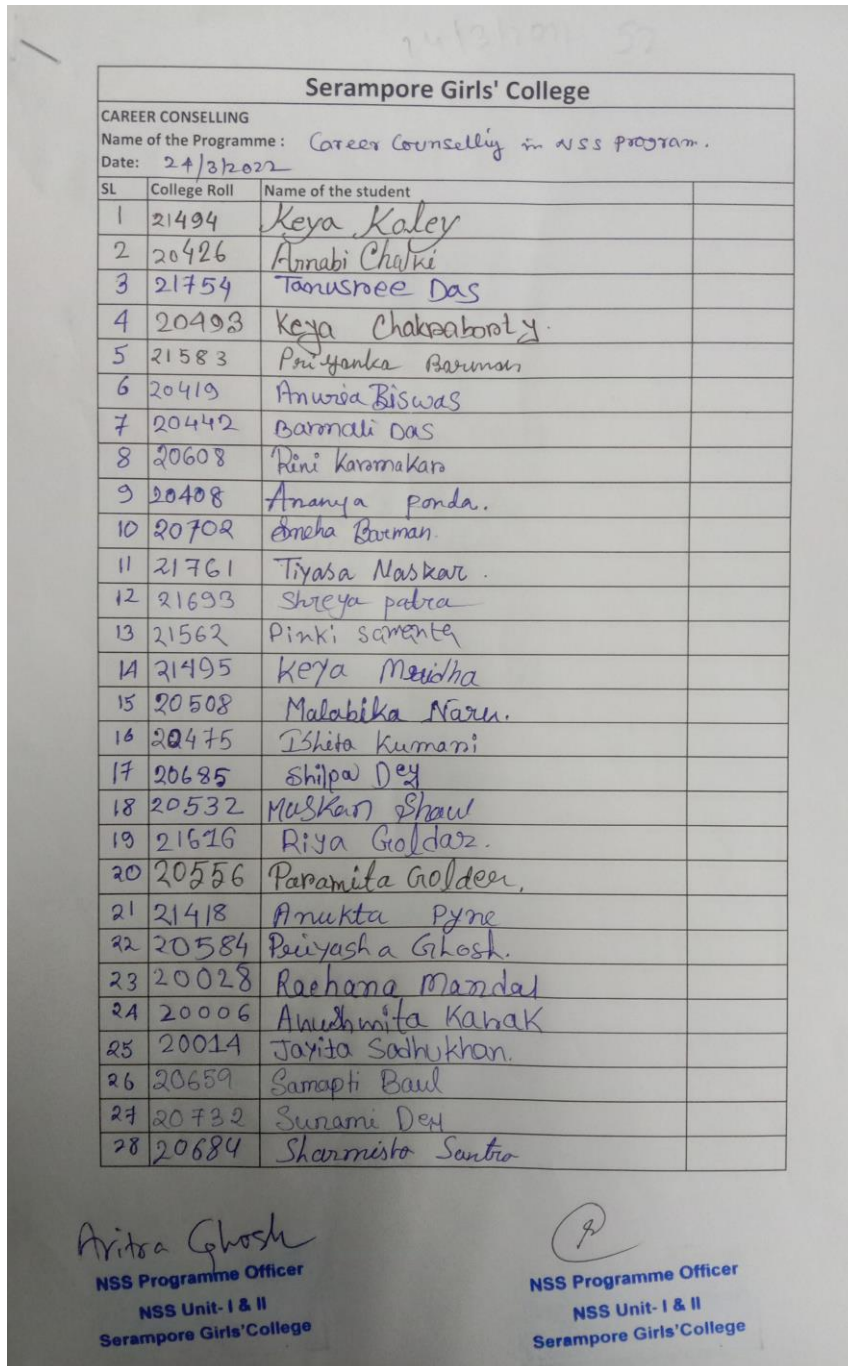 Serampore Girls' College
CAREER CONSELLING
Name of the Programme : Career Counsellig in NSS program.
Date: 24/3/2022
SL College Roll Name of the student
1 21494 Keya Koley
2 20426 Arnabi Chalki
3 21754 Tanusree Das
4 20493 Keya Chakraborty.
5 21583 Priyanka Barman
6 20419 Biswas
7 20442 Barnali Das
8 20608 Rini Karmakar
9 20408 Ananya Ponda.
10 20702 Sneha Barman.
11 21761 Tiyasa Naskar.
12 21693 Shreya patra
13 21562 Pinki samanta
14 21495 Keya Mridha
15 20508 Malabika Naru.
16 20475 Ishita Kumari
17 20685 Shilpa Dey
18 20532 Muskan Shaw
19 21616 Riya Goldar.
20 20556 Paramita Golder,
21 21418 Anukta Pyne
22 20584 Priyasha Ghosh.
23 20028 Rachana Mandal
24 20006 Anushmita Karak
25 20014 Jayita Sadhukhan.
26 20659 Samapti Baul
27 20732 Sunami Dey
28 20684 Sharmista Santra
Aritra Ghosh
NSS Programme Officer
NSS Unit- I & II
Serampore Girls'College
NSS Programme Officer
NSS Unit- I & II
Serampore Girls'College